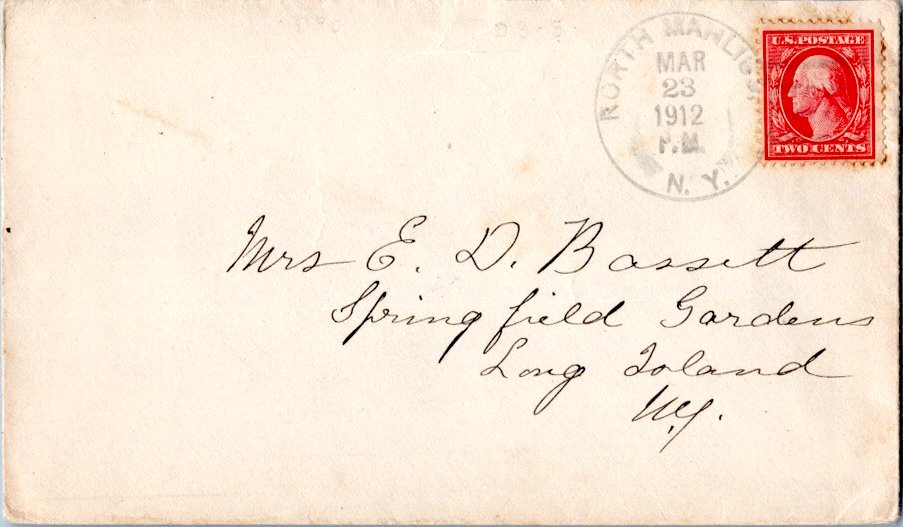 NORTH MANLIUS,
MAR
23
1912
P.M.
N. Y.
U.S. POSTAGE
TWO CENTS
Mrs E. D. Bassett
Springfield Gardens
Long Island
N.Y.